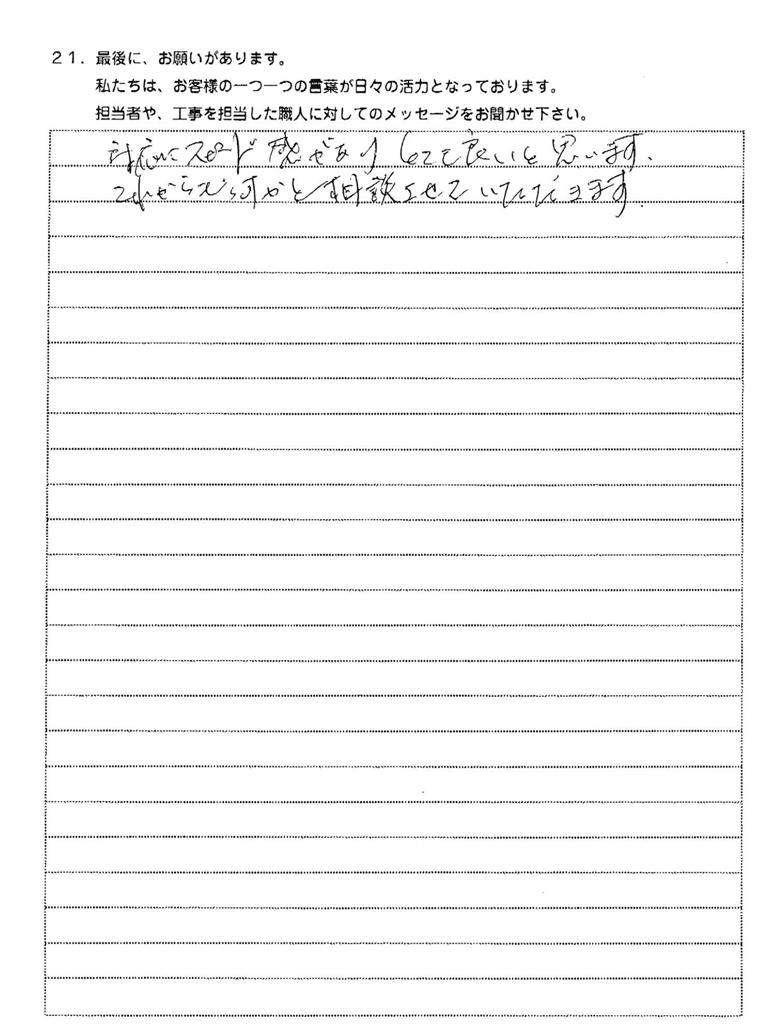 21. 最後に、お願いがあります。
私たちは、お客様の一つ一つの言葉が日々の活力となっております。
担当者や、工事を担当した職人に対してのメッセージをお聞かせ下さい。
対応にスピード感があり とても良いと思います.
これからも何かと相談させていただきます.